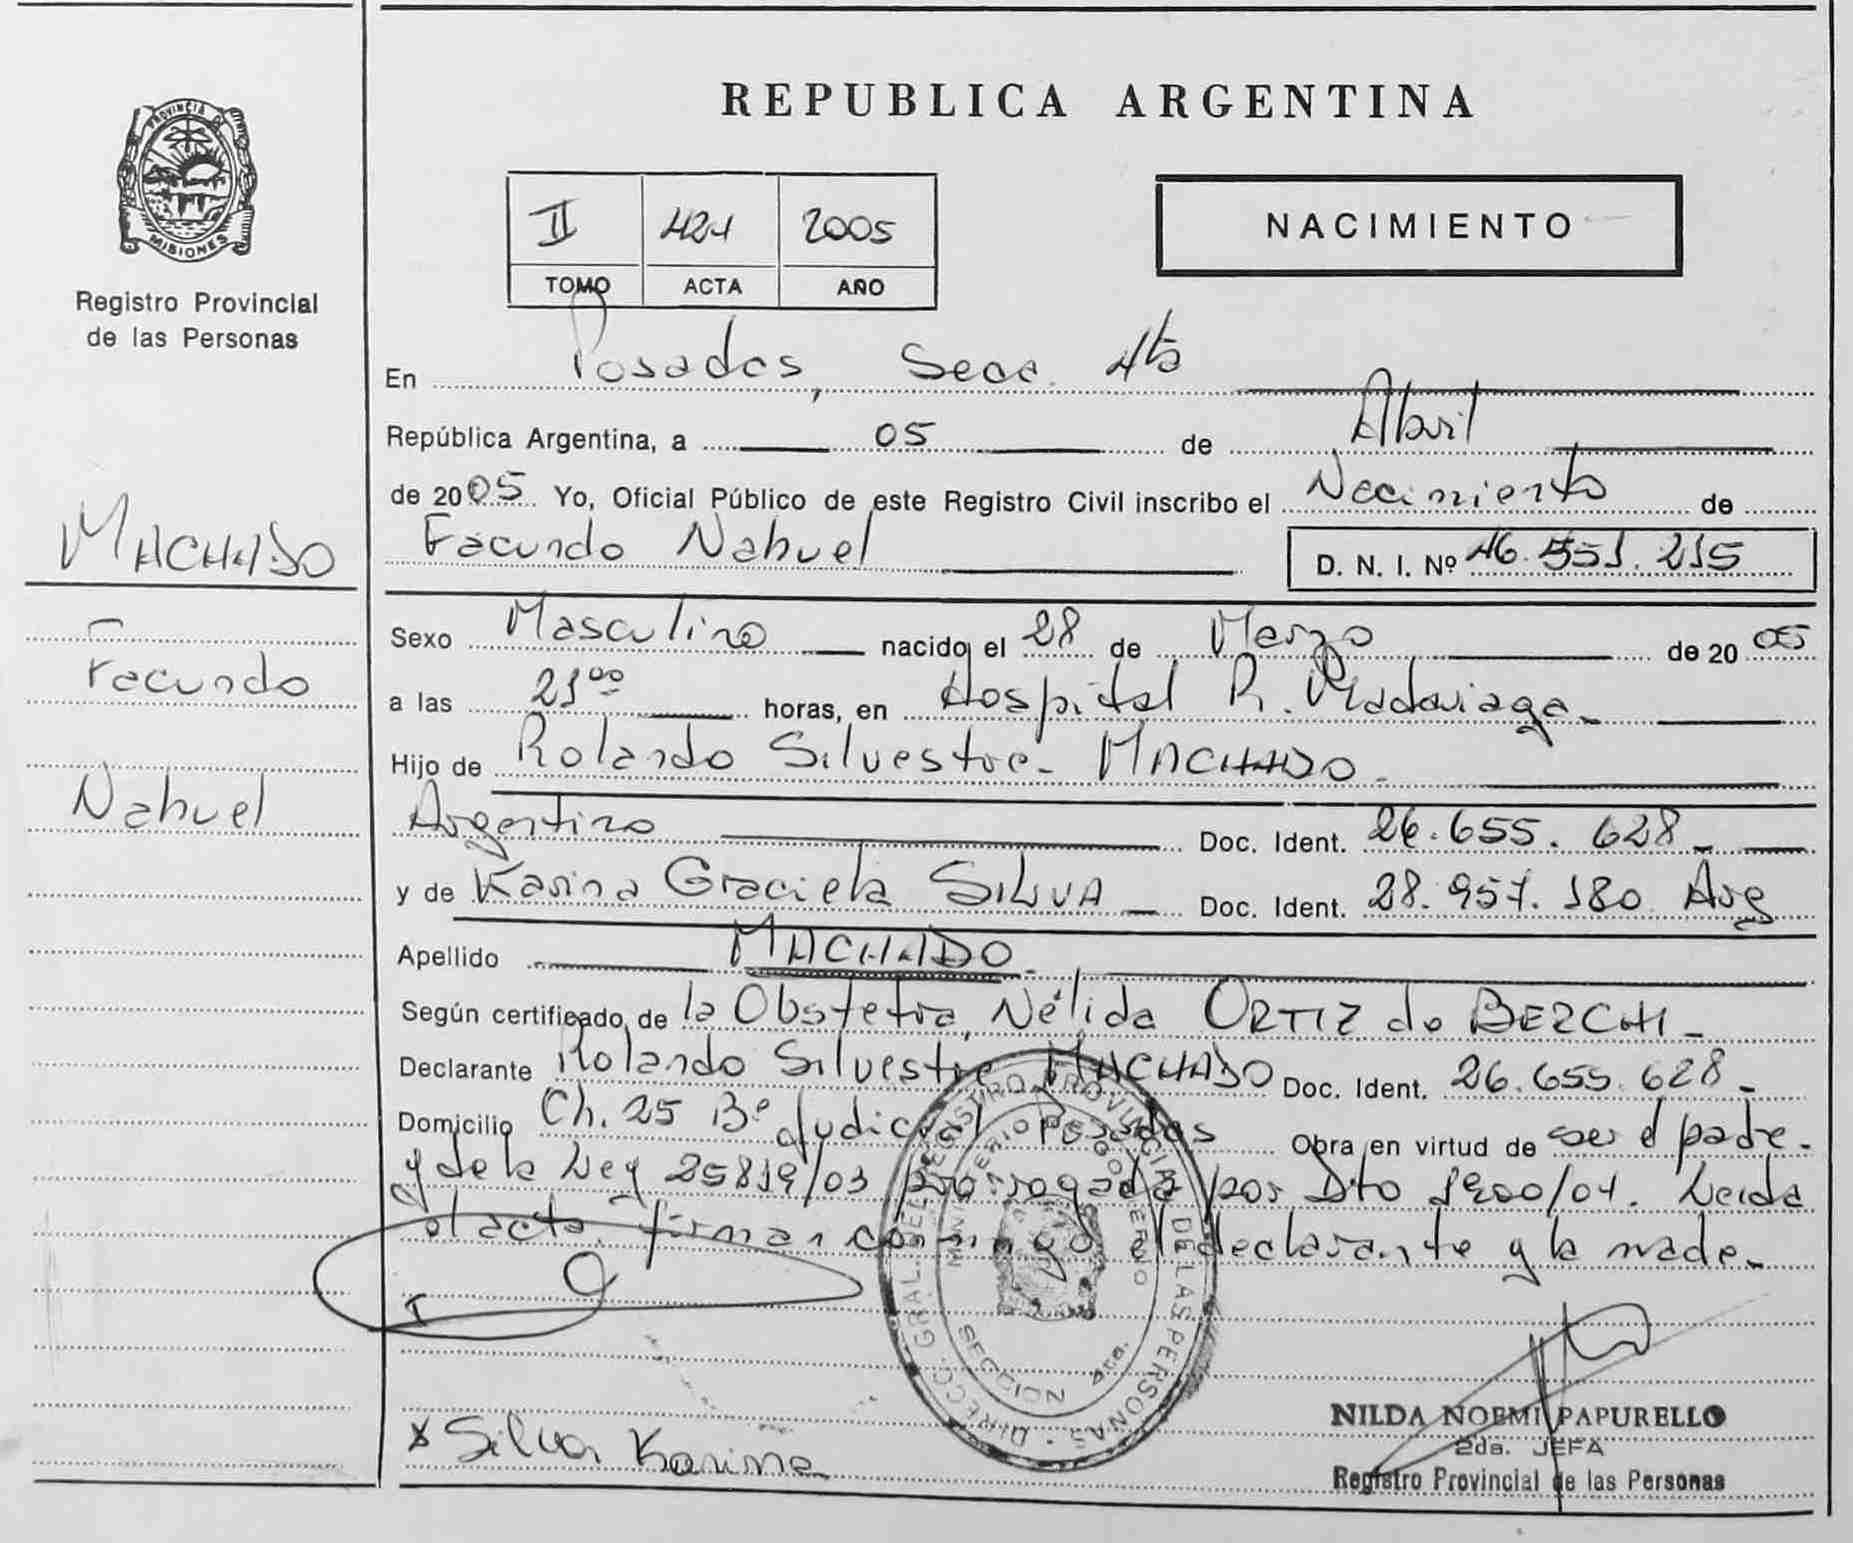 PROVINCIA DE
MISIONES
Registro Provincial
de las Personas
MACHADO
Facundo
Nahuel
REPUBLICA ARGENTINA
II 421 2005
TOMO ACTA AÑO
NACIMIENTO
En Posadas, Secc. 4ta
República Argentina, a 05 de Abril
de 2005 Yo, Oficial Público de este Registro Civil inscribo el Nacimiento de
Facundo Nahuel D. N. I. Nº 46.551.215
Sexo Masculino nacido el 28 de Marzo de 2005
a las 21ºº horas, en Hospital R. Madariaga
Hijo de Rolando Silvestre MACHADO
Argentino Doc. Ident. 26.655.628
y de Karina Graciela SILVA Doc. Ident. 28.957.180 Arg
Apellido MACHADO
Según certificado de la Obstetra Nélida ORTIZ de BERCHI
Declarante Rolando Silvestre MACHADO Doc. Ident. 26.655.628
Domicilio Ch. 25 Bº Judicial Posadas Obra en virtud de ser el padre
y de la Ley 25819/03 prorrogada por Dto 1900/04. Leida
el acta firman conmigo el declarante y la madre
DIRECC. GRAL. DEL REGISTRO PROVINCIAL DE LAS PERSONAS
MINISTERIO DE GOBIERNO
SECCION 4ta.
x Silva Karina
NILDA NOEMI PAPURELLO
2da. JEFA
Registro Provincial de las Personas